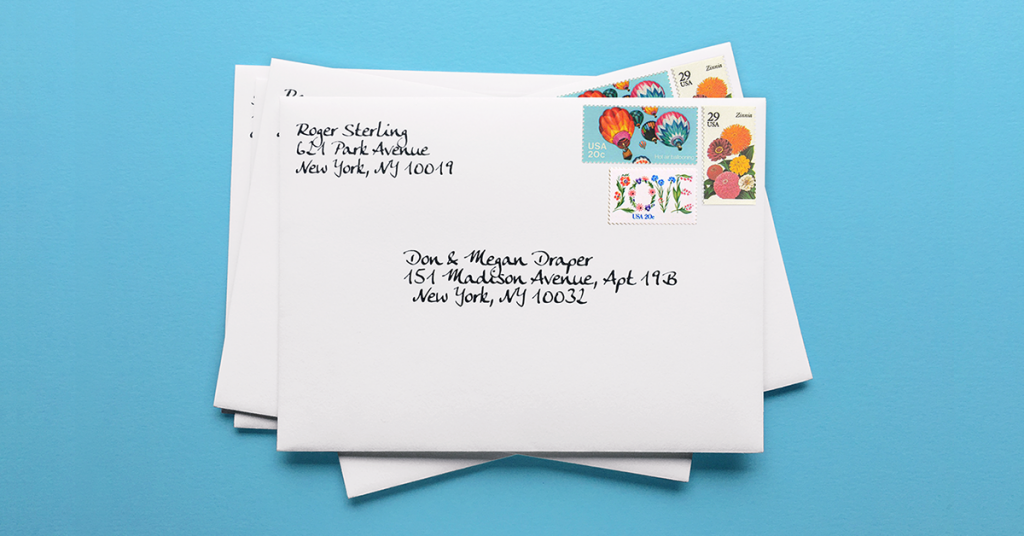 Roger Sterling
621 Park Avenue
New York, NY 10019
29
USA
Zinnia
USA
20c
29
USA
Zinnia
LOVE
USA 20c
Don & Megan Draper
151 Madison Avenue, Apt 19B
New York, NY 10032